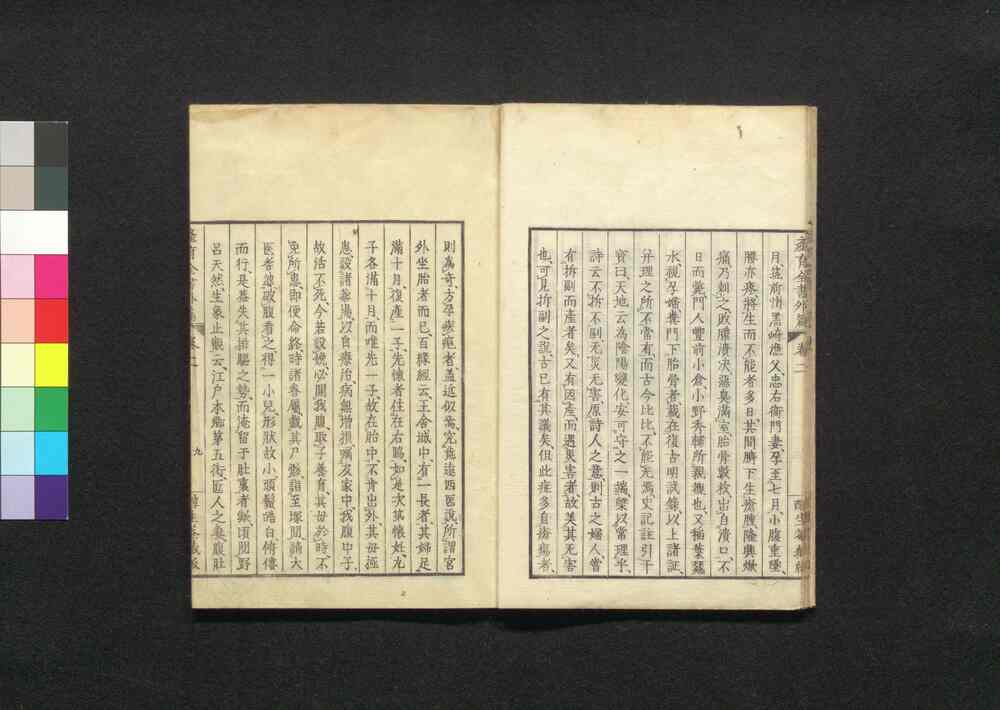 產育全書外篇 卷二
月、豊前惰黑崎漁父、忠右衛門妻、孕至七月、小腹重墜、
腰亦痠、將生而不能者多日、其間臍下生瘡腫、隆興燉
痛、乃刺之、敗膿潰决、惡臭滿室、胎骨數枚、出自潰口、不
日而斃、門人豐前小倉、小野秀穉所親機也、又稲葉
水視孕婦糞門下胎骨者、載在復古明試錄、以上諸証、
幷理之所不常有、而古今比比、不能无焉、史記註引干
寶曰、天地云為、陰陽變化、安可守之一端、槩以常理乎、
詩云、不拆不副、无災无害、原詩人之意、則古之婦人、嘗
有拆副而產者矣、又有因產而遇災害者、故美其无害
也、可見拆副之說、古已有其議矣、但此症多自瘡瘍者、
則為奇、方孕瘀瘕者、蓋近似焉、究竟遠西医說、所謂宮
外坐胎者而已、百緣經云、王舍城中、有一長者、其婦足
滿十月、復產一子、先懷者住在右脇、如是次第懷妊、九
子各滿十月、而唯先一子、故在胎中、不肯出外、其母極
患、設諸藥湯、以自療治、病無增損、囑及家中、我腹中子、
故活不死、今若設終、必開我腹、取子養育、其母於時、不
免所患、即便命終、時諸眷屬、載其尸骸、詣至塚間、請大
医耆婆、破腹看之、得一小兒、形狀故小、頭鬚皓白、俯僂
而行、是蓋失其排驅之勢、而淹留于肚裏者、歟、頃閱野
呂天然、生象止觀云、江戸本鄉第五街、匠人之妻、腹肚
九